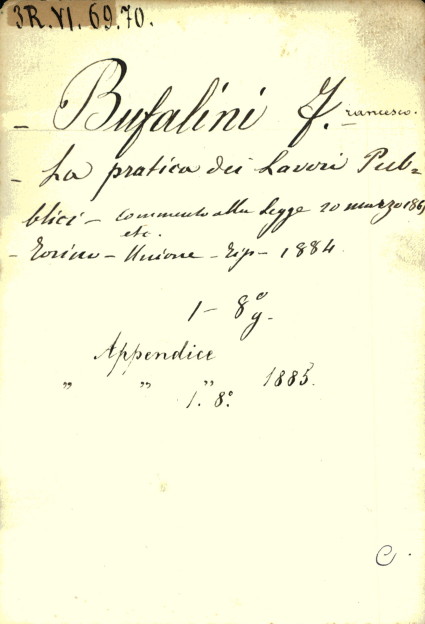 3R.VI.69.70.
- Bufalini F.rancesco.
- La pratica dei Lavori Pub=
blici - commento alla Legge 20 marzo 1865
etc.
- Torino - Unione - Tip - 1884
1 - 8º
g.
Appendice
" " " 1885.
1. 8º.
C.